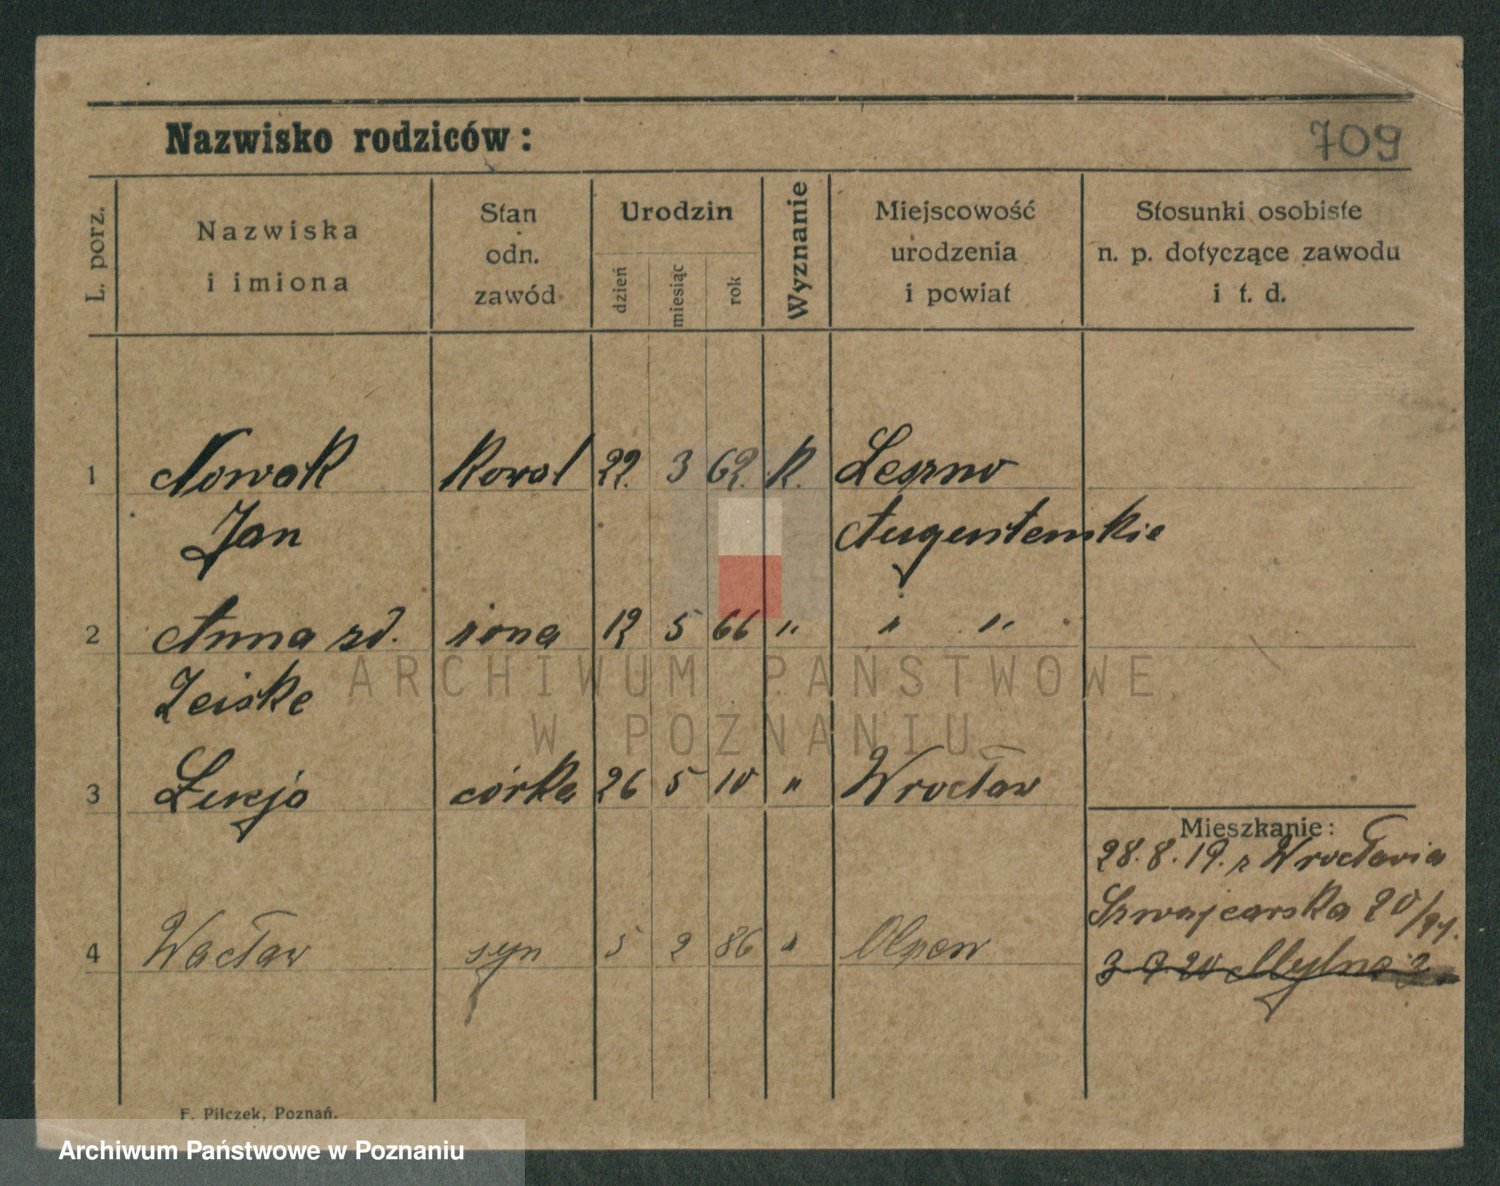 Nazwisko rodziców:
709
L. porz.
Nazwiska
i imiona
Stan
odn.
zawód
Urodzin
dzień
miesiąc
rok
Wyznanie
Miejscowość
urodzenia
i powiat
Stosunki osobiste
n. p. dotyczące zawodu
i t. d.
1 Nowak Kowal 22. 3 62. K. Leszno
Jan
2 Anna zd. żona 12 5 66 " " "
Zeiske
ARCHIWUM PAŃSTWOWE
W POZNANIU
3 Łucja córka 26 5 10 " Wrocław
Mieszkanie:
28.8.19. z Wrocławia
Szwajcarska 20/
4 Wacław syn 5 2 86 "
3 9 20 Mylna 2
F. Pilczek, Poznań.
Archiwum Państwowe w Poznaniu